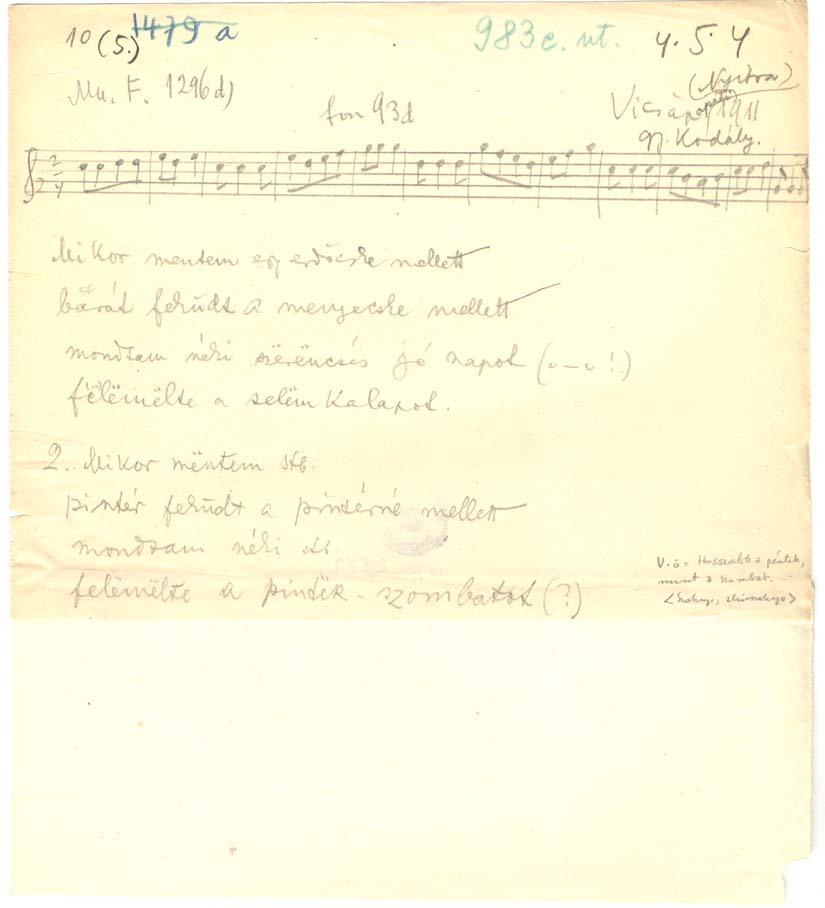 10 (5.) 1479 a 983 c. ut. 4. 5. 4
Mu. F. 1296 d) fon 93d Vicsápapáti (Nyitra) 1911
gy. Kodály.
2
4
Mikor mentem egy erdőcske mellett
barát feküdt a menyecske mellett
mondtam néki szërëncsés jó napot (υ – υ !)
fëlëmëlte a selëm kalapot.
2. Mikor mëntem stb.
pintér feküdt a pintérné mellett
mondtam néki stb
felëmëlte a pintëk - szombatot (?)
V.ö = Hosszabb a péntek,
mint a szombat.